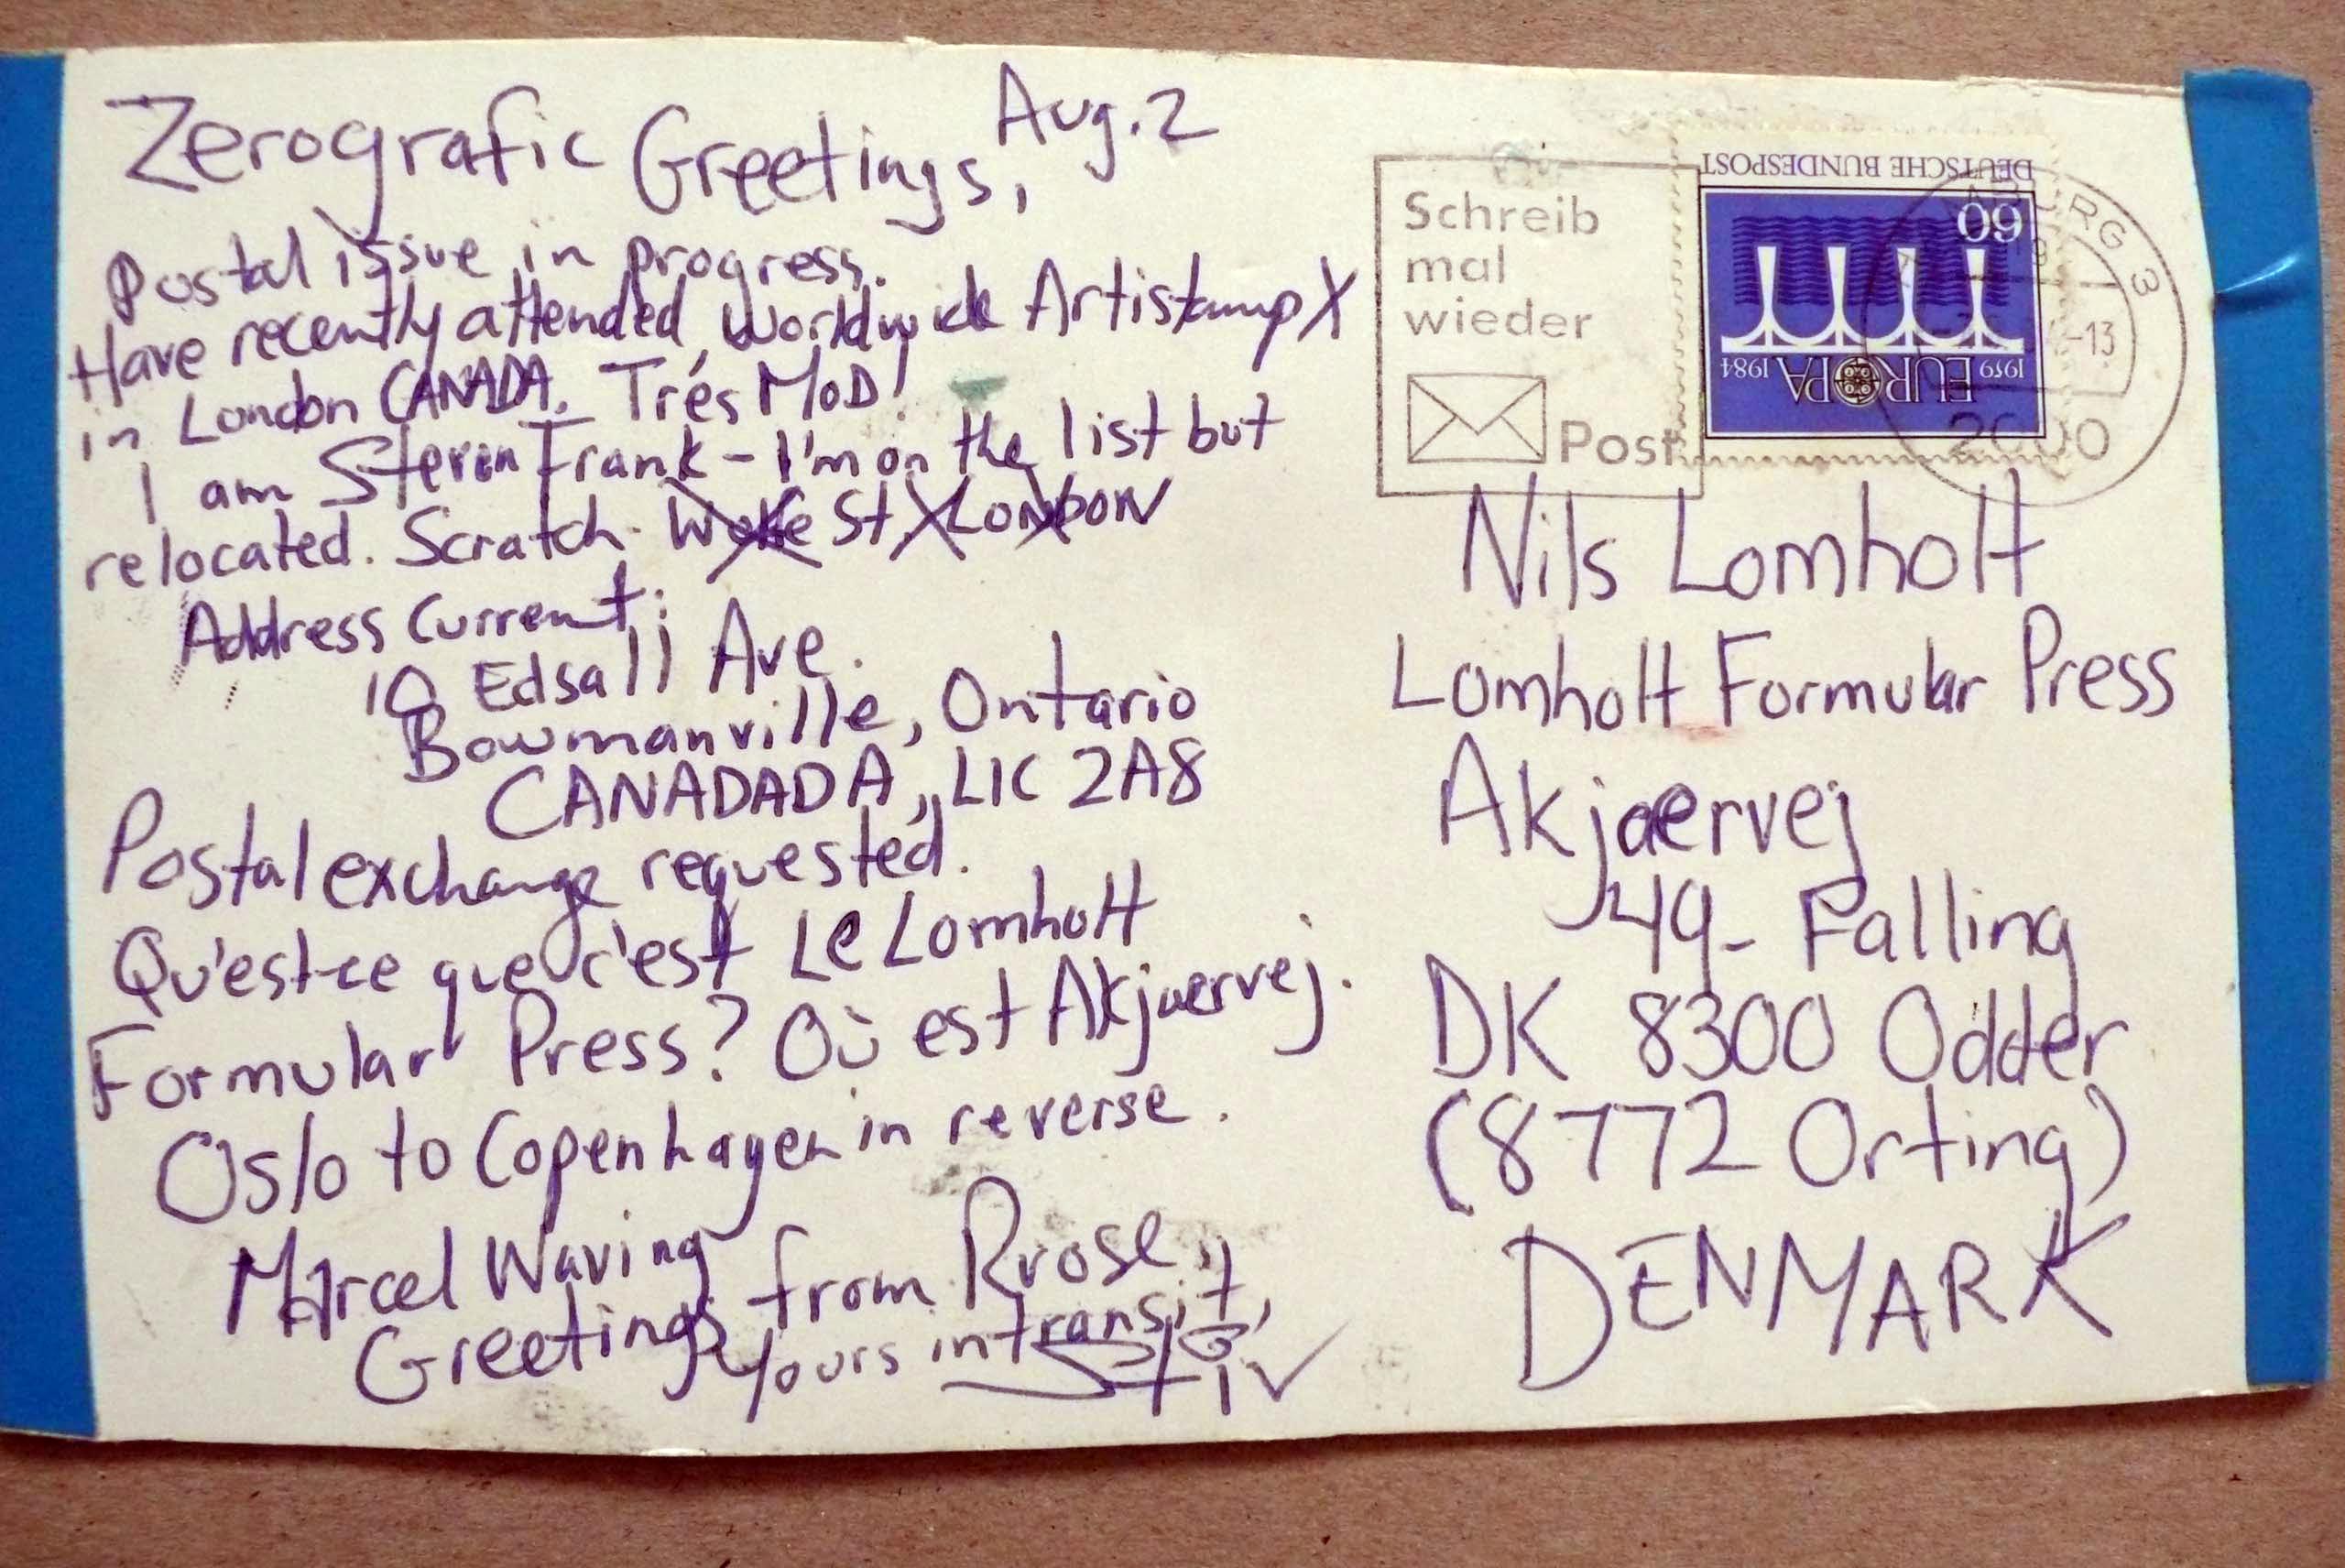 Zerografic Greetings, Aug. 2
Postal issue in progress.
Have recently attended Worldwide Artistamp X
in London CANADA. Trés MoD!
I am Steven Frank - I'm on the list but
relocated. Scratch St. LONDON
Address Current:
10 Edsall Ave.
Bowmanville, Ontario
CANADADADA, L1C 2A8
Postal exchange requested.
Qu'est-ce que c'est Le Lomholt
Formular Press? Où est Akjaervej.
Oslo to Copenhagen in reverse.
Marcel Waving
Greetings from Rrose,
Yours in transit,
Schreib
mal
wieder
Post
DEUTSCHE BUNDESPOST
60
1959 EUROPA 1984
RG 3
-13
2000
Nils Lomholt
Lomholt Formular Press
Akjaervej
49- Falling
DK 8300 Odder
(8772 Orting)
DENMARK